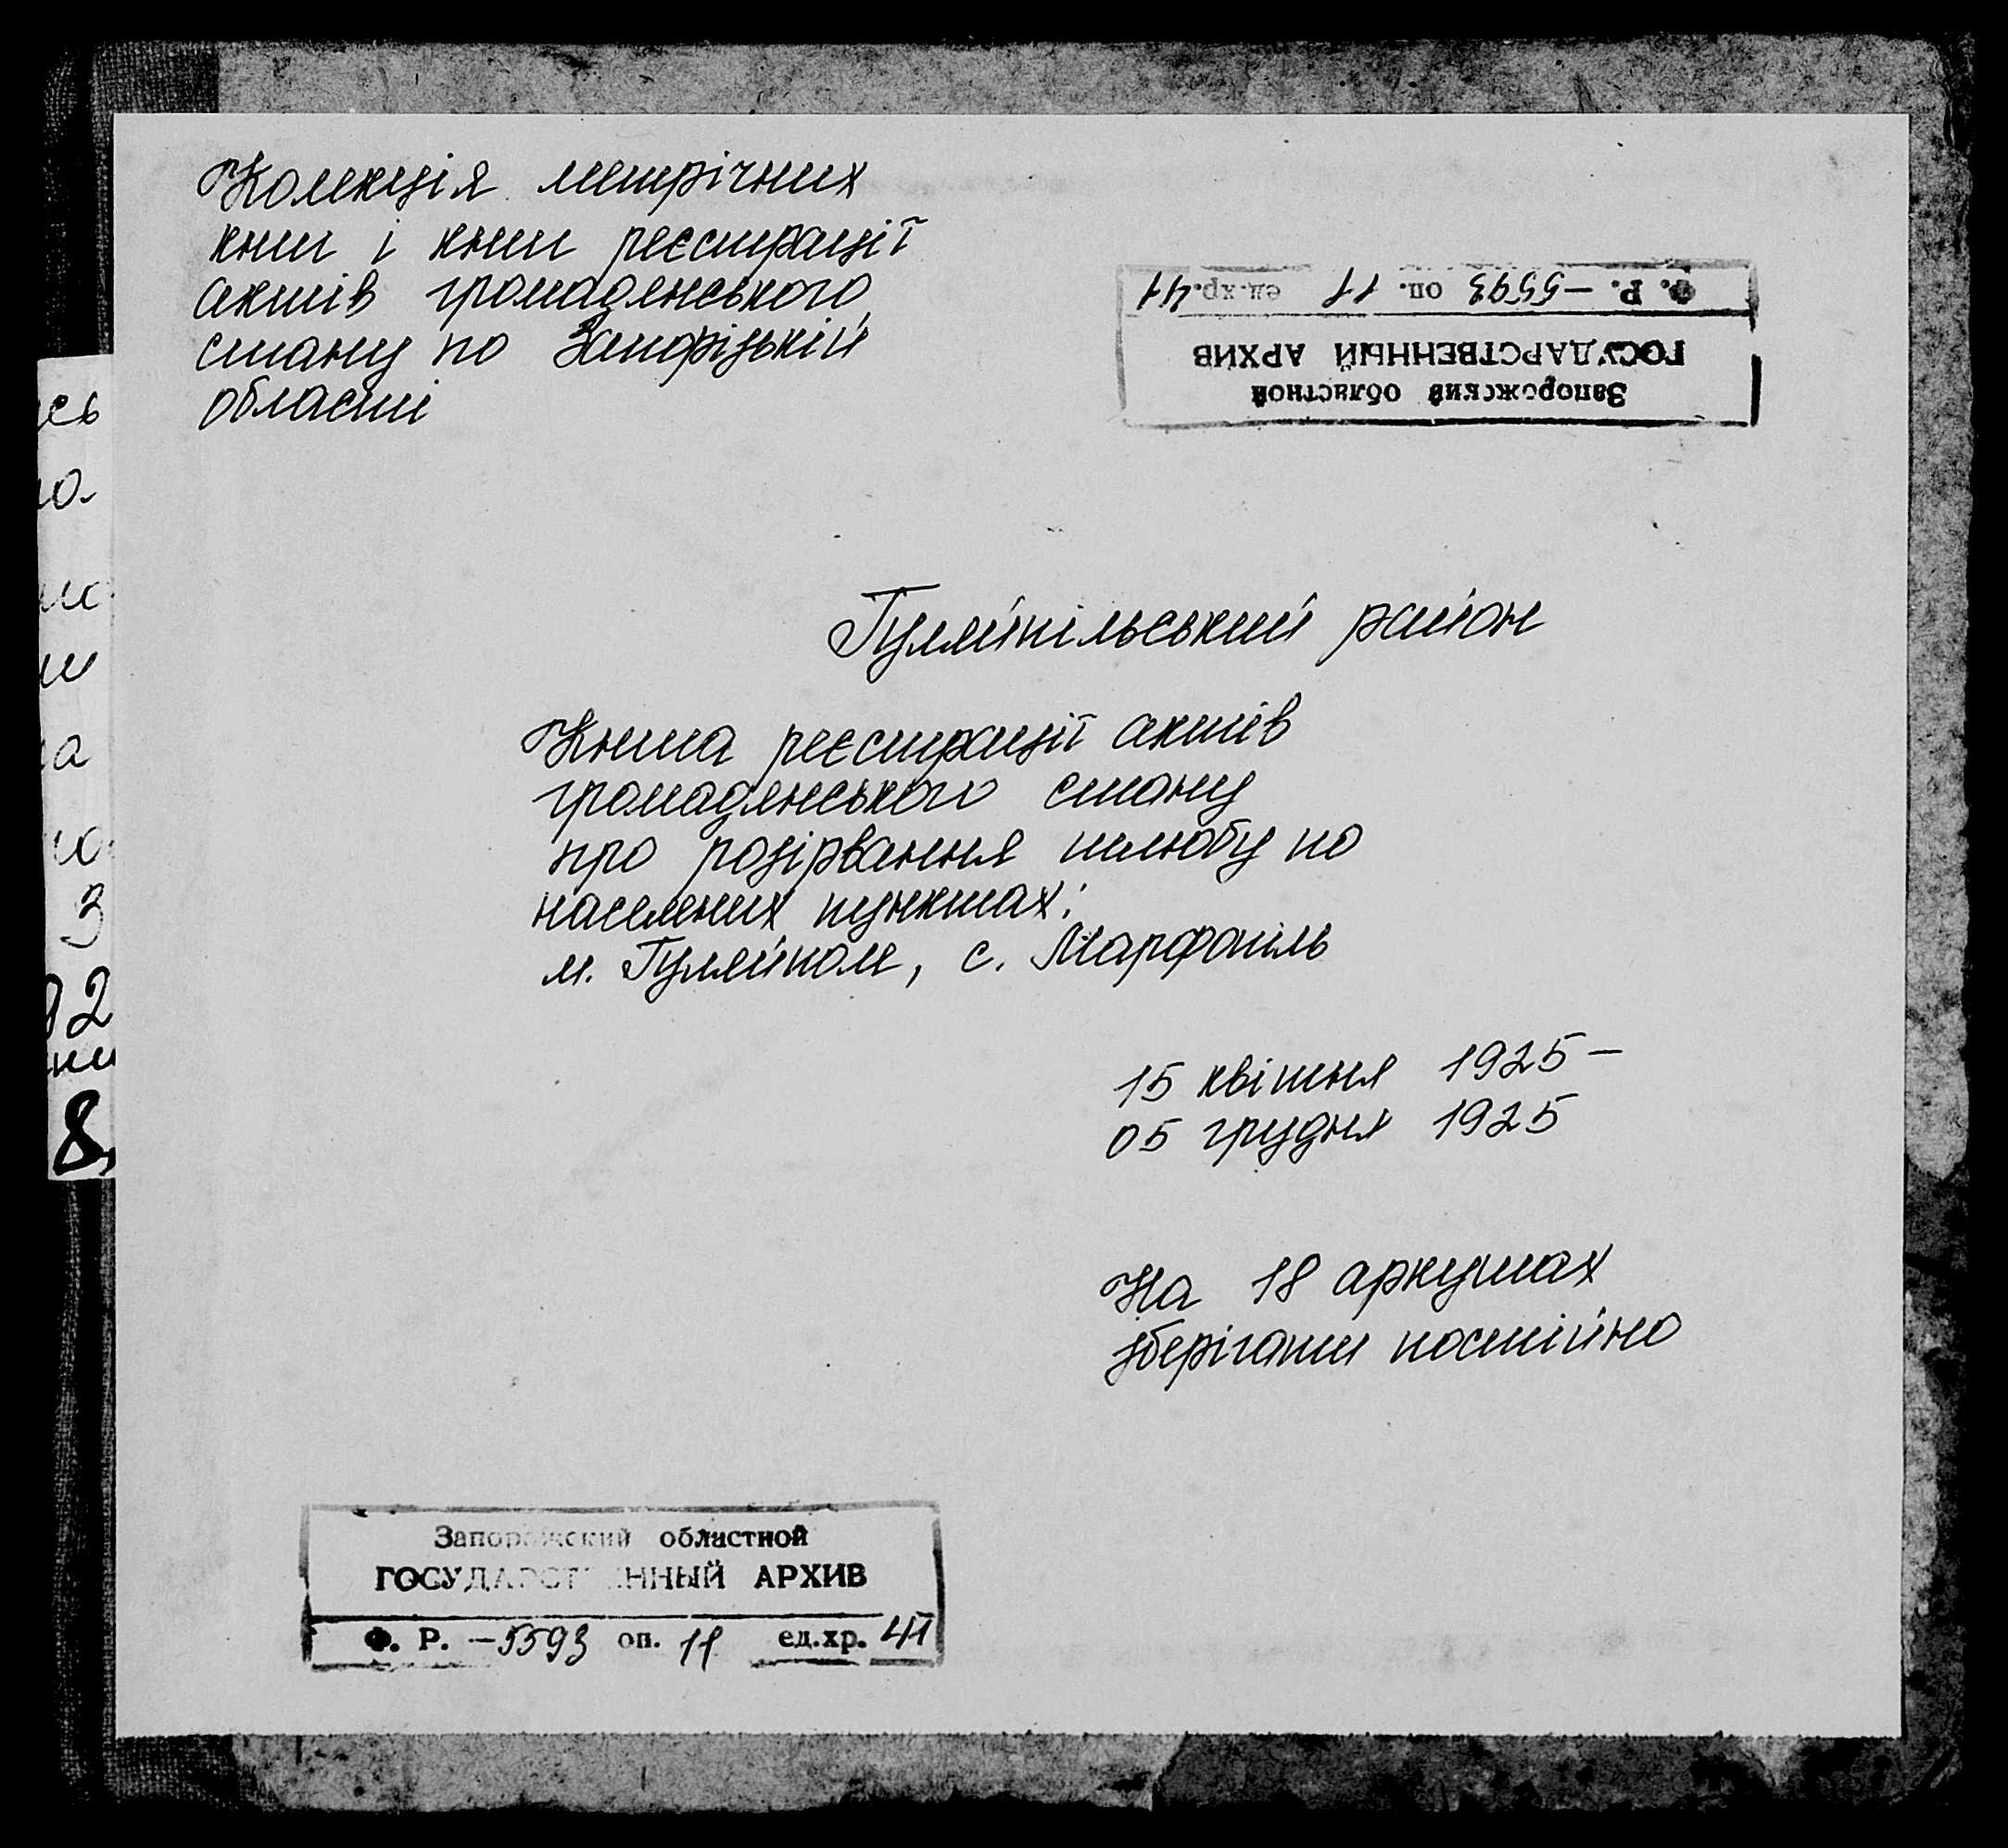 Колекція метрічних
книг і книг реєстрації
актів громадянського
стану по Запорізькій
області
Ф. Р. -5593 оп. 11 ед.хр. 41
ГОСУДАРСТВЕННЫЙ АРХИВ
Запорожский областной
Гуляйпільський район
Книга реєстрації актів
громадянського стану
про розірвання шлюбу по
населених пунктах:
м. Гуляйполе, с. Марфопіль
15 квітня 1925-
05 грудня 1925
На 18 аркушах
зберігати постійно
Запорожский областной
ГОСУДАРСТВЕННЫЙ АРХИВ
Ф. Р. -5593 оп. 11 ед.хр. 41